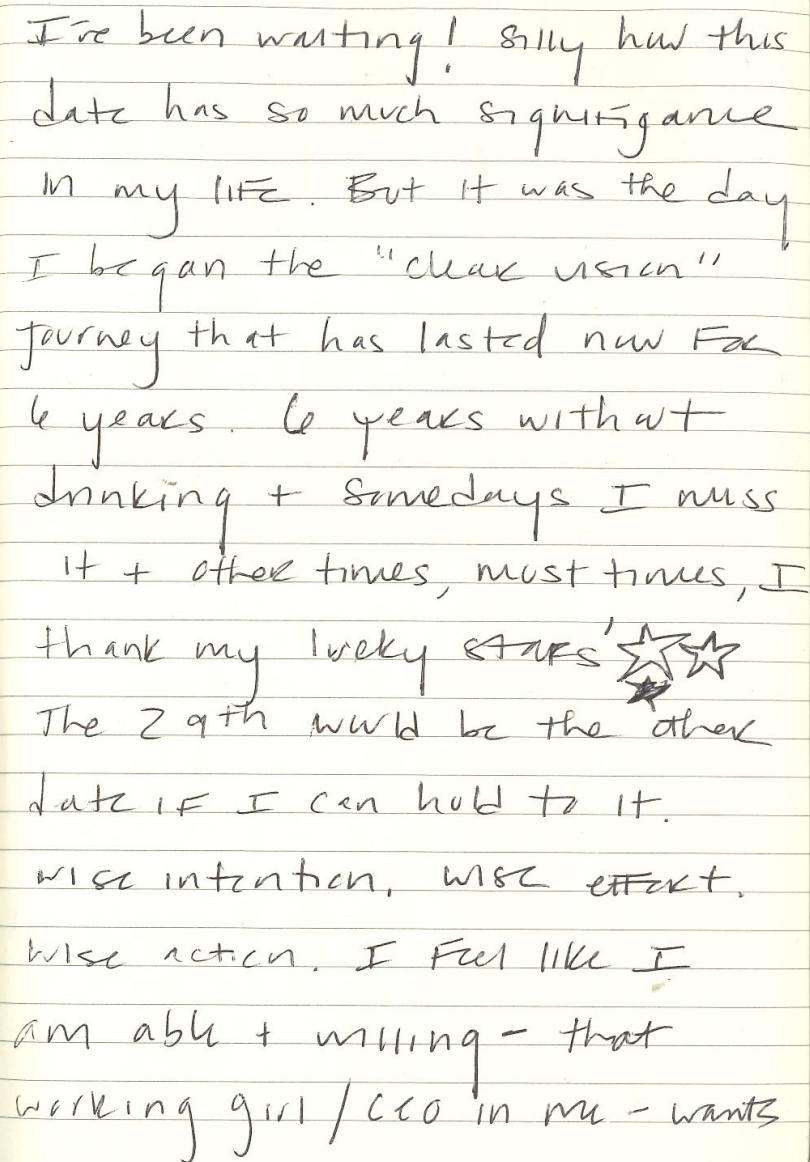 I've been waiting! Silly how this
date has so much signifigance
in my life. But it was the day
I began the "clear vision"
journey that has lasted now For
6 years. 6 years without
drinking + somedays I miss
it + other times, most times, I
thank my lucky stars' ☆☆★
The 29th would be the other
date if I can hold to it.
wise intention. wise effort.
Wise action. I Feel like I
am able + willing - that
working girl/CEO in me - wants